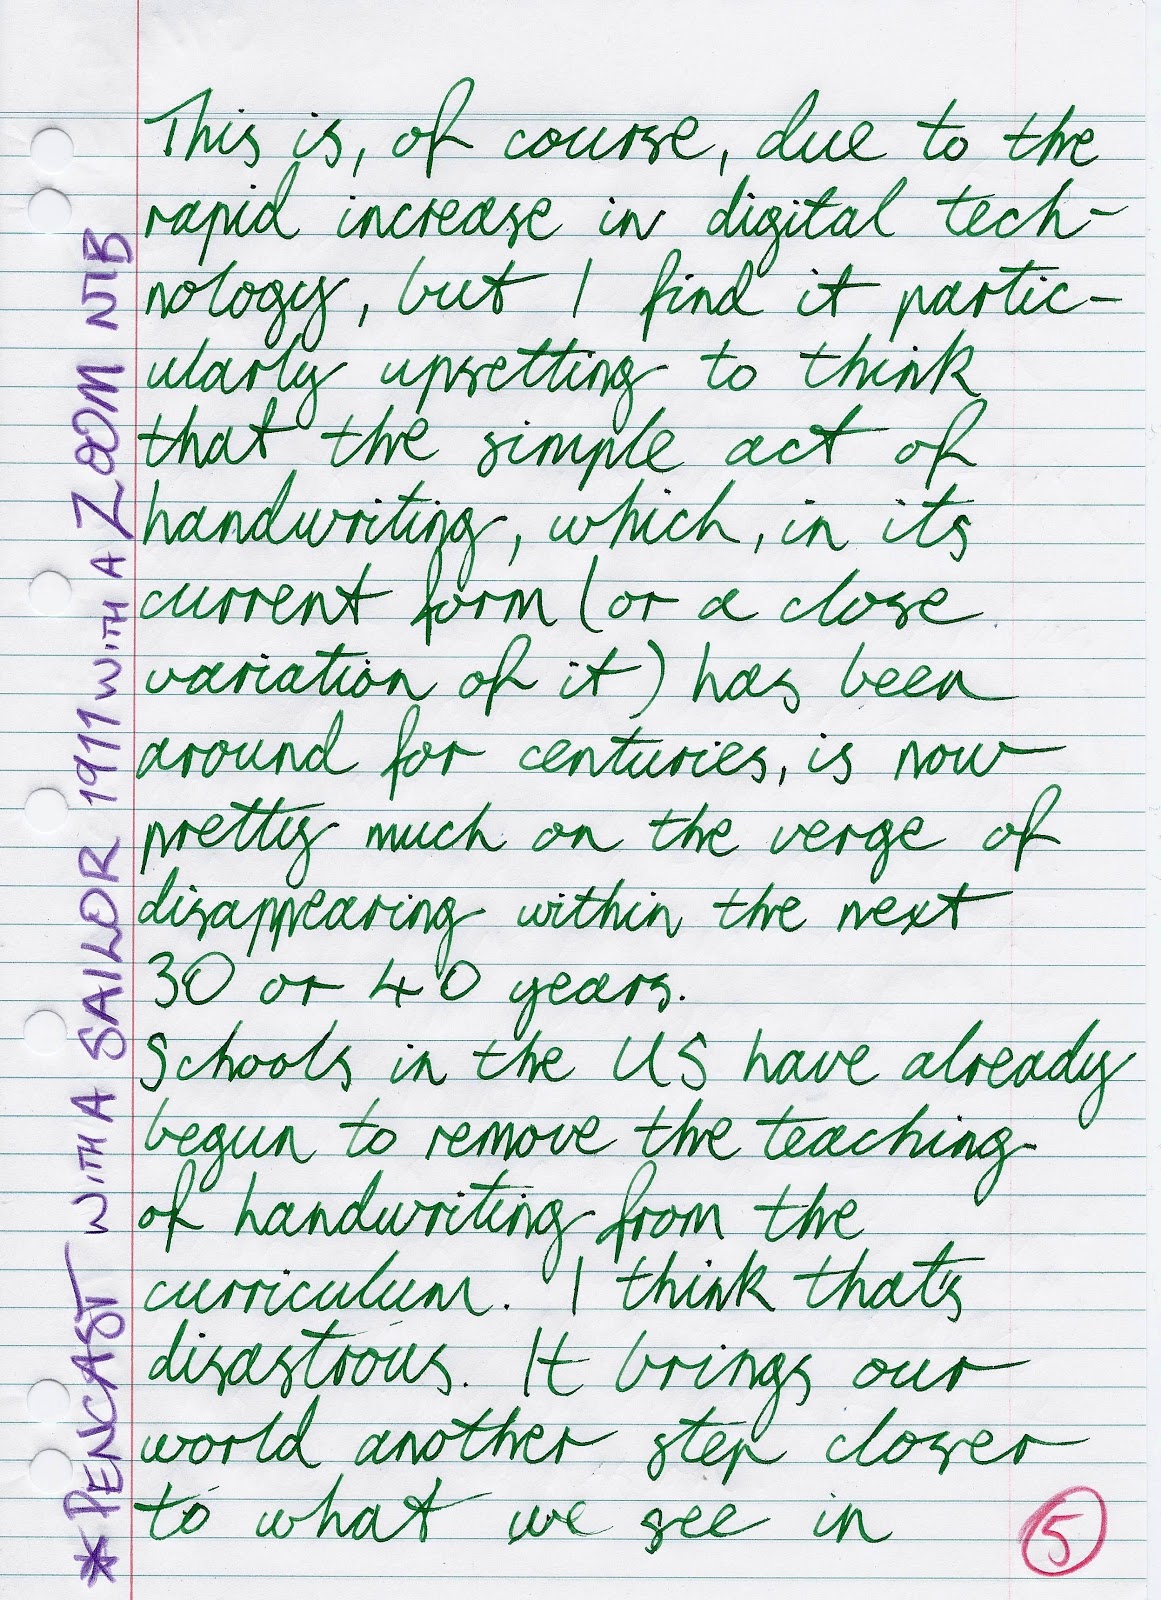 This is, of course, due to the
rapid increase in digital tech-
nology, but I find it partic-
ularly upsetting to think
that the simple act of
handwriting, which, in its
current form (or a close
variation of it) has been
around for centuries, is now
pretty much on the verge of
disappearing within the next
30 or 40 years.
Schools in the US have already
begun to remove the teaching
of handwriting from the
curriculum. I think that's
disastrous. It brings our
world another step closer
to what we see in
5
*PENCAST WITH A SAILOR 1911 WITH A ZOOM NIB